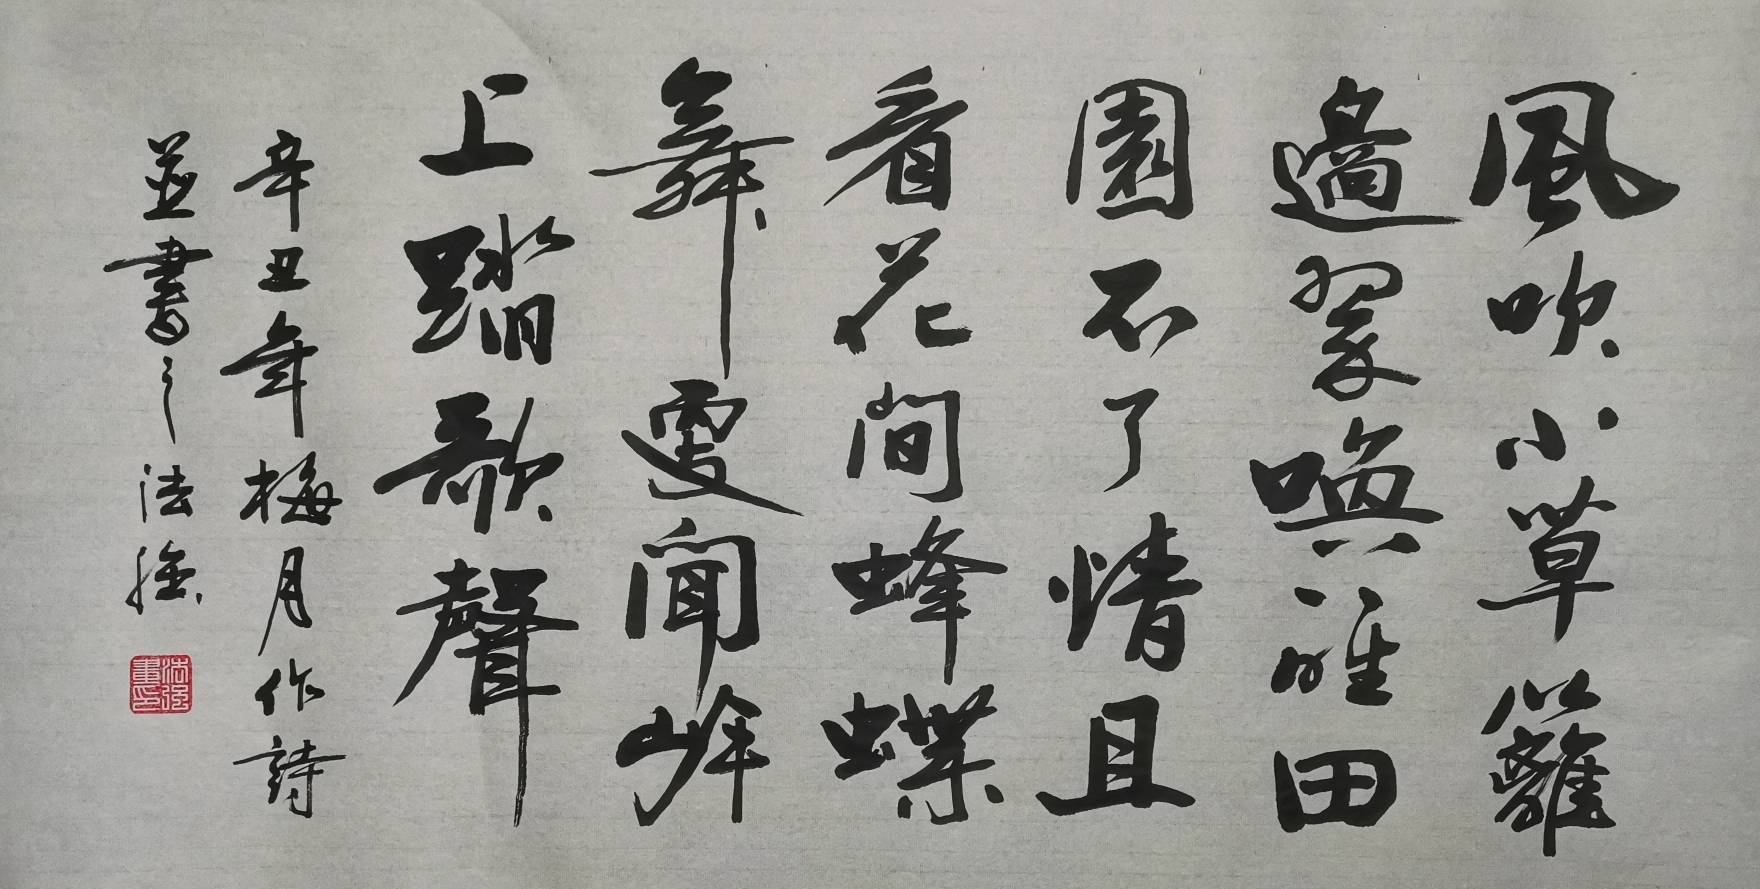 風吹小草籬
邊翠喚醒田
園不了情且
看花間蜂蝶
舞更聞岸
上踏歌聲
辛丑年梅月作詩
並書之法強